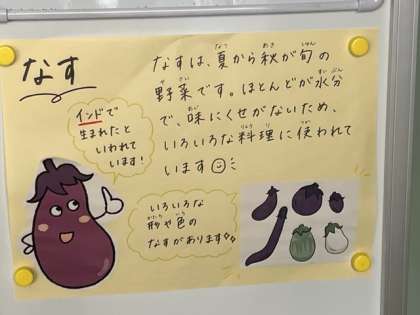 なす
なすは、夏から秋が旬の
野菜です。ほとんどが水分
で、味にくせがないため、
いろいろな料理に使われて
います
インドで
生まれたと
いわれて
います!
いろいろな
形や色の
なすがあります